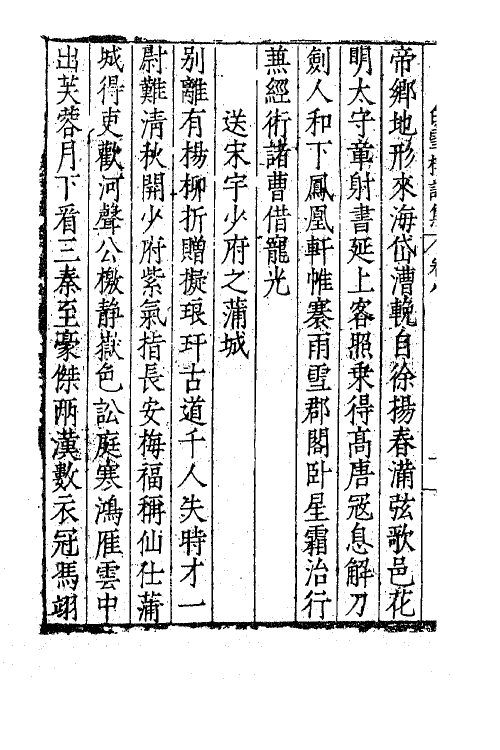 白雪樓詩集 卷八
帝鄉地形來海岱漕輓自徐揚春滿弦歌邑花
明太守章射書延上客照乗得髙唐冦息解刀
劍人和下鳳凰軒帷褰雨雪郡閣卧星霜治行
蕪經術諸曹借寵光
送宋宇少府之蒲城
別離有楊柳折贈擬琅玕古道千人失時才一
尉難清秋開少府紫氣指長安梅福稱仙仕蒲
城得吏歡河聲公檄静嶽色訟庭寒鴻雁雲中
出芙蓉月下看三秦至豪傑兩漢數衣冠馮翊